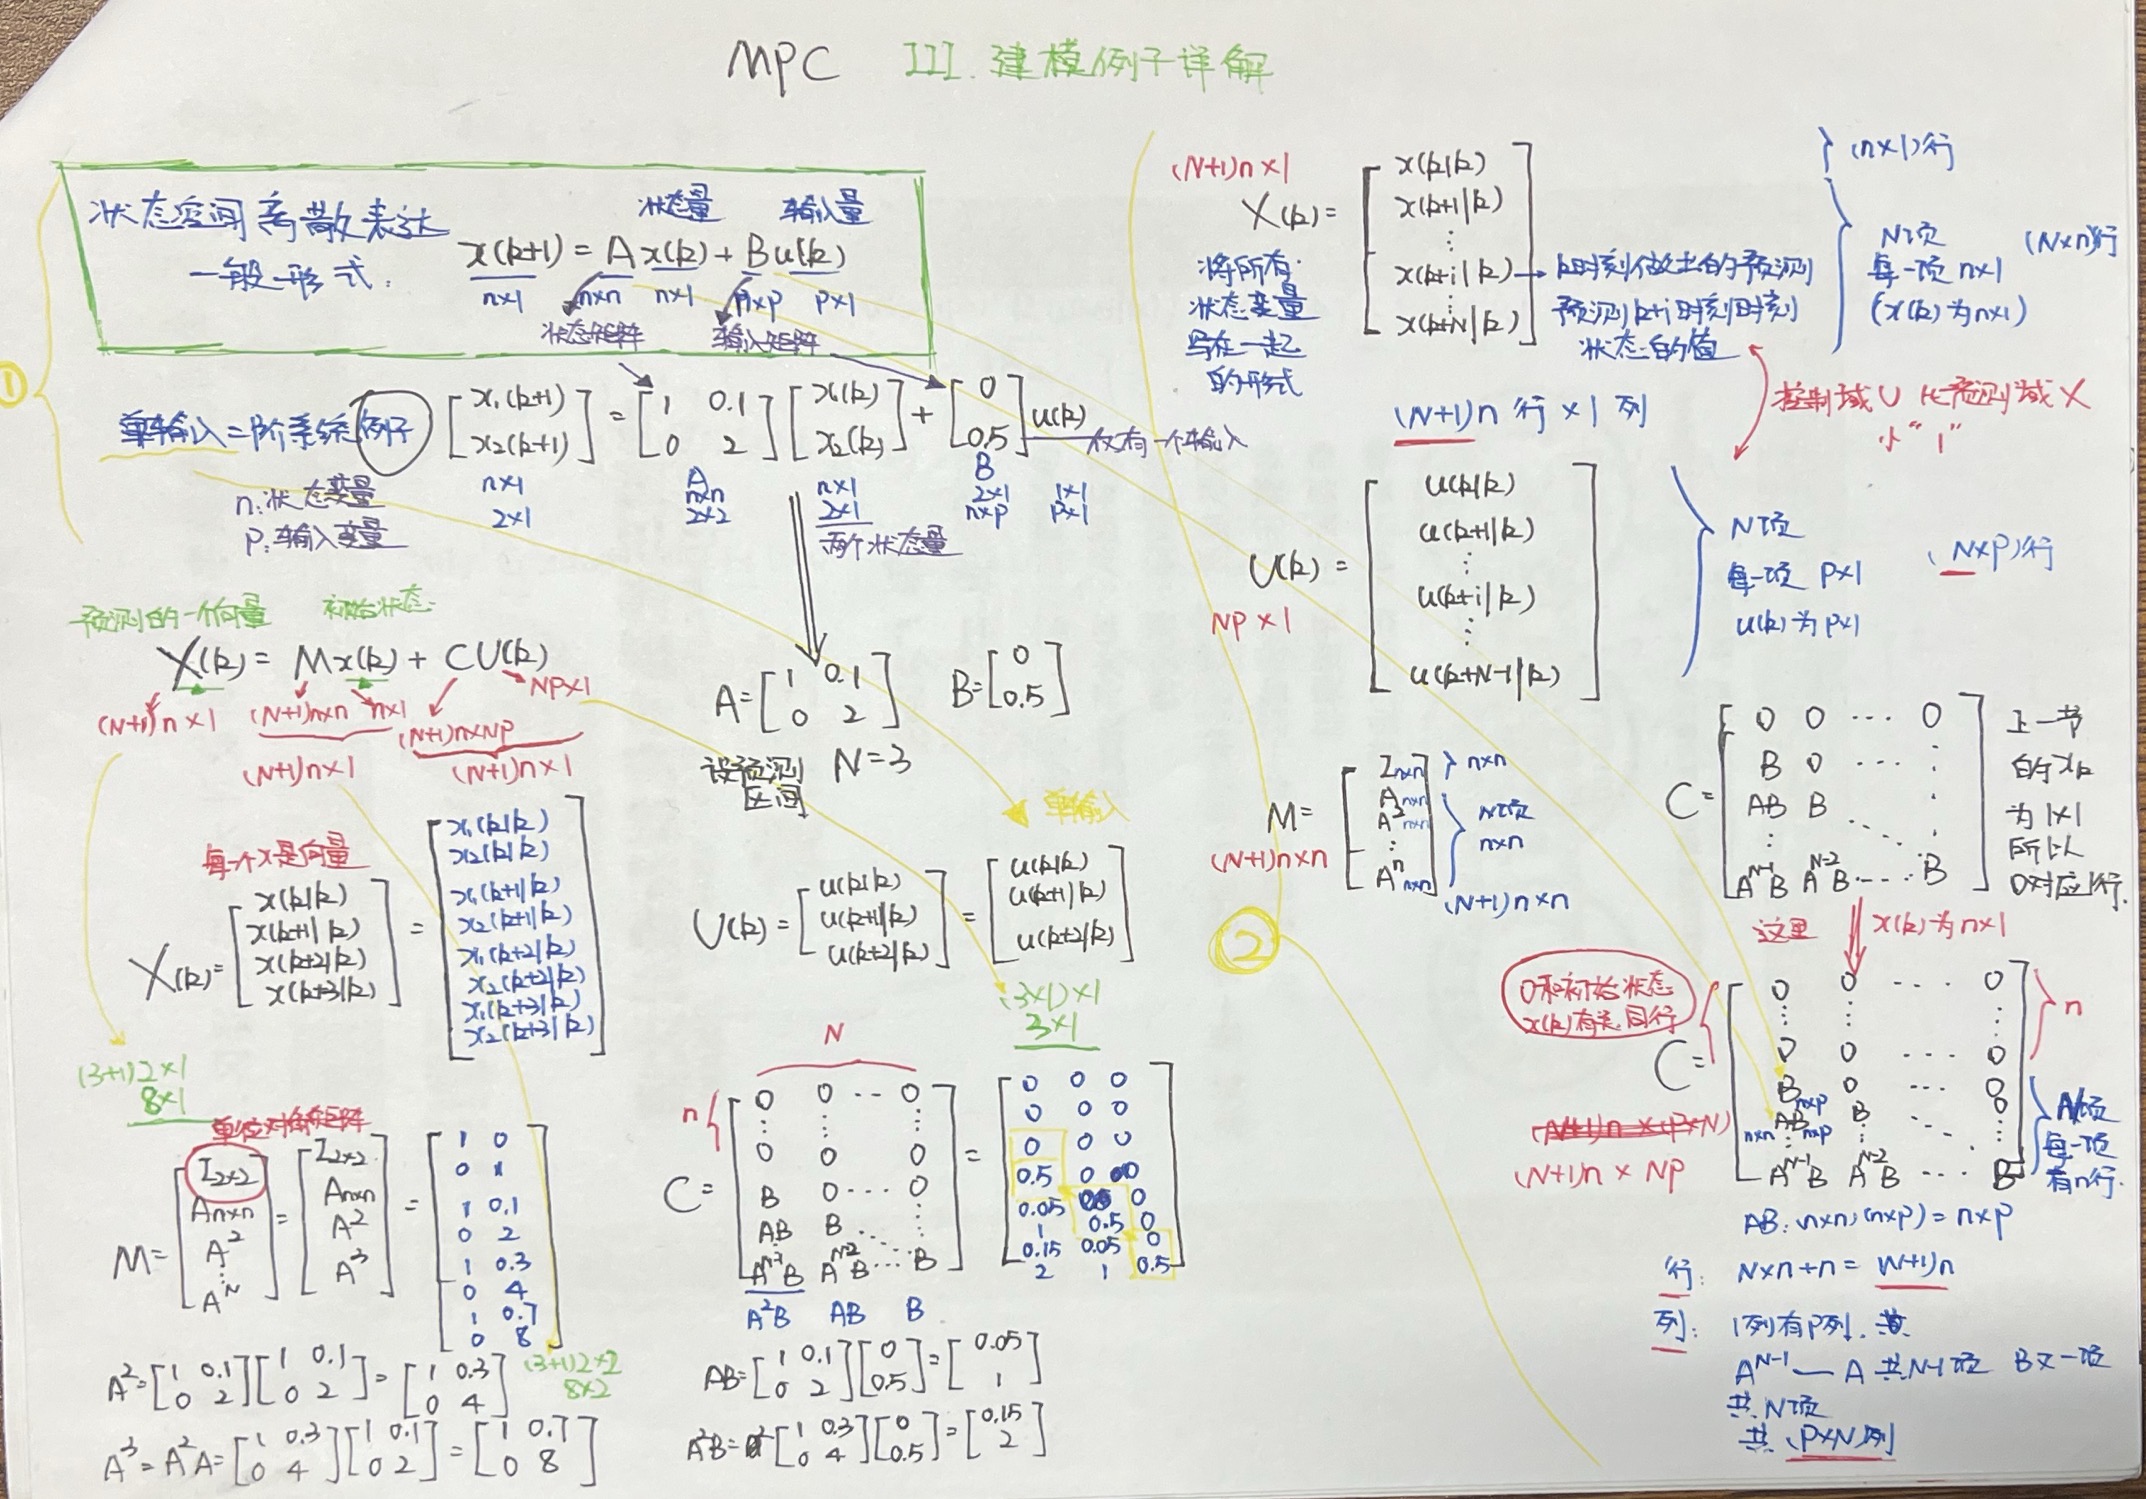 MPC III. 建模例子详解
①
状态空间离散表达
一般形式：
状态量 输入量
x(k+1) = A x(k) + B u(k)
n×1 n×n n×1 n×p p×1
状态矩阵 输入矩阵
单输入二阶系统例子
[x₁(k+1) x₂(k+1)] = [1 0.1; 0 2] [x₁(k) x₂(k)] + [0; 0.5] u(k) 仅有一个输入
n×1 A n×n n×1 B 2×1 1×1
2×1 2×2 2×1 n×p p×1
n:状态变量
p:输入变量
两个状态量
预测的一个向量 初始状态
X(k) = Mx(k) + CU(k)
(N+1)n×1 (N+1)n×n n×1 (N+1)n×NP NP×1
(N+1)n×1 (N+1)n×1
A=[1 0.1; 0 2] B=[0; 0.5]
设预测区间 N=3
每个x是向量
X(k)=[x(k|k); x(k+1|k); x(k+2|k); x(k+3|k)] = [x₁(k|k); x₂(k|k); x₁(k+1|k); x₂(k+1|k); x₁(k+2|k); x₂(k+2|k); x₁(k+3|k); x₂(k+3|k)]
(3+1)2×1
8×1
单输入
U(k)=[u(k|k); u(k+1|k); u(k+2|k)] = [u(k|k); u(k+1|k); u(k+2|k)]
(3×1)×1
3×1
单位对角矩阵
M=[I₂ₓ₂; Aₙₓₙ; A²; ⋮; Aᴺ] = [I₂ₓ₂; Aₙₓₙ; A²; A³] = [1 0; 0 1; 1 0.1; 0 2; 1 0.3; 0 4; 1 0.7; 0 8]
(3+1)2×2
8×2
A²=[1 0.1; 0 2][1 0.1; 0 2]=[1 0.3; 0 4]
A³=A²A=[1 0.3; 0 4][1 0.1; 0 2]=[1 0.7; 0 8]
N
n
C=[0 0 ⋯ 0; ⋮ ⋮ ⋮; 0 0 0; B 0 ⋯ 0; AB B ⋱ ⋮; Aᴺ⁻¹B Aᴺ⁻²B ⋯ B] = [0 0 0; 0 0 0; 0 0 0; 0.5 0 0; 0.05 0 0; 1 0.5 0; 0.15 0.05 0; 2 1 0.5]
A²B AB B
AB=[1 0.1; 0 2][0; 0.5]=[0.05; 1]
A²B=[1 0.3; 0 4][0; 0.5]=[0.15; 2]
②
(N+1)n×1
X(k)=[x(k|k); x(k+1|k); ⋮; x(k+i|k); x(k+N|k)]
将所有
状态变量
写在一起
的形式
k时刻做出的预测
预测k+i时刻时刻
状态的值
(n×1)行
N项
每一项 n×1
(x(k)为n×1)
(N×n)行
(N+1)n 行×1 列
控制域U 比预测域X
小“1”
U(k)=[u(k|k); u(k+1|k); ⋮; u(k+i|k); ⋮; u(k+N-1|k)]
NP×1
N项
每一项 p×1
u(k)为p×1
(N×P)行
M=[Iₙₓₙ; Aₙₓₙ; A²ₙₓₙ; ⋮; Aⁿₙₓₙ]
(N+1)n×n
n×n
N项
n×n
(N+1)n×n
C=[0 0 ⋯ 0; B 0 ⋯ ⋮; AB B ⋱ ⋮; ⋮; Aᴺ⁻¹B Aᴺ⁻²B ⋯ B]
上一节
的xk
为1×1
所以
0对应1行.
这里 x(k)为n×1
0和初始状态
x(k)有关,同行
C=[0 0 ⋯ 0; ⋮ ⋮ ⋮; 0 0 ⋯ 0; B 0 ⋯ 0; AB B ⋱ 0; ⋮ ⋮ ⋮; Aᴺ⁻¹B Aᴺ⁻²B ⋯ B]
n×p
n×n n×p
n
N项
每一项
有n行.
(N+1)n×(P×N)
(N+1)n×NP
AB:(n×n)(n×p)=n×p
行: N×n+n=(N+1)n
列: 1列有p列.共
Aᴺ⁻¹—A 共N-1项 B又一项
共N项
共(P×N)列